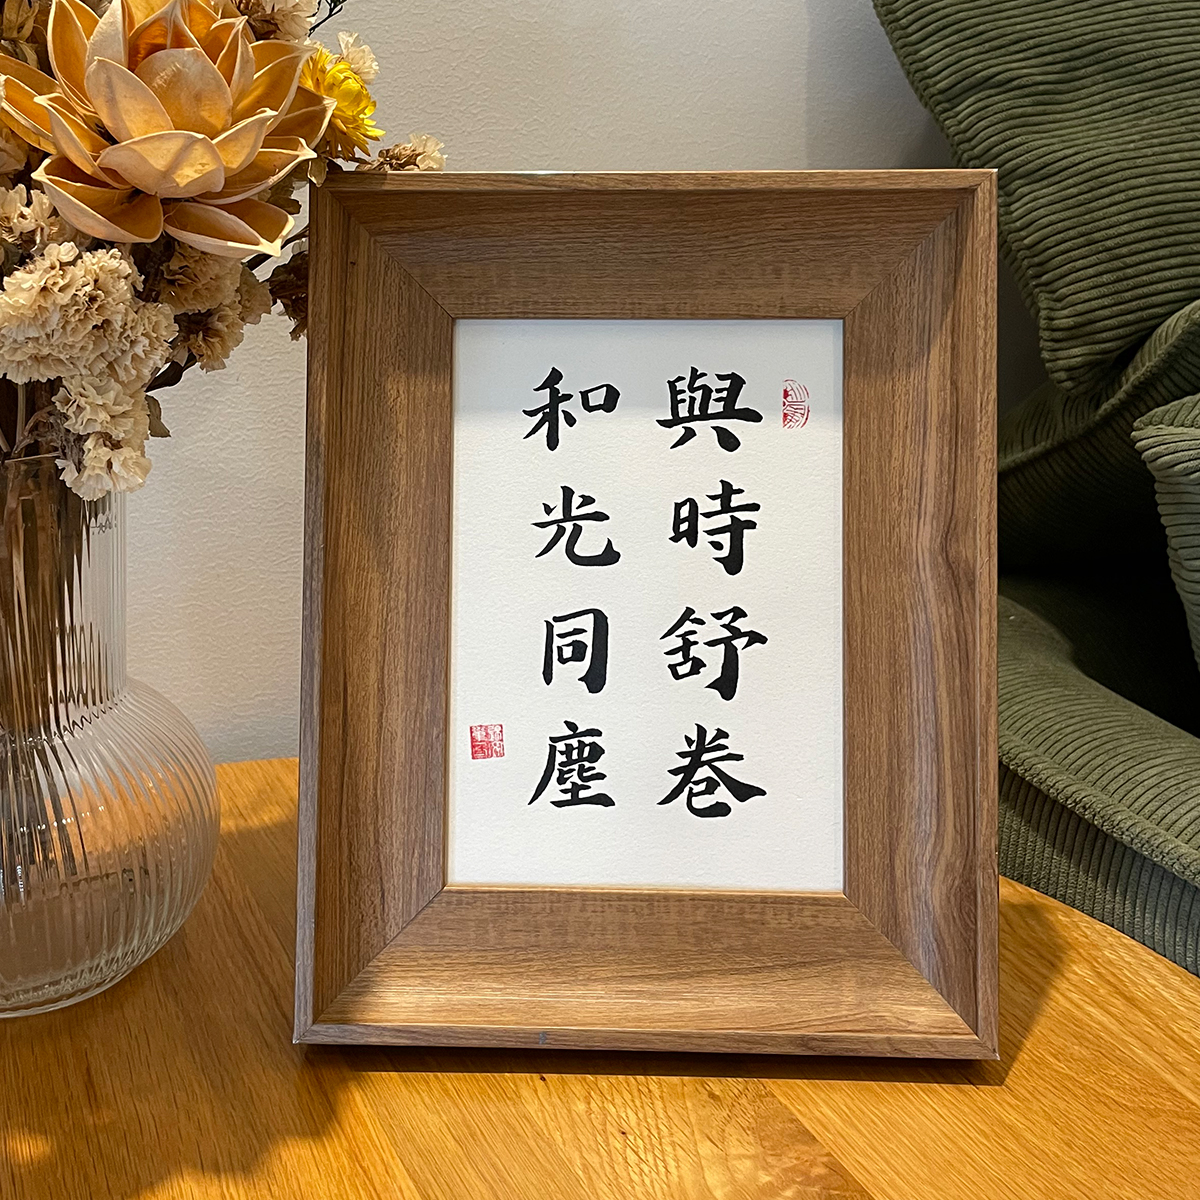 與時舒卷
和光同塵